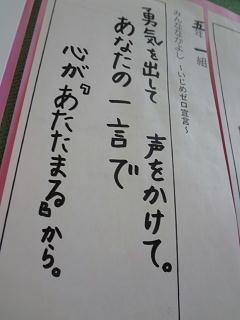 五年 一組
みんななかよし ～いじめゼロ宣言～
勇気を出して 声をかけて。
あなたの一言で
心が『あたたまる』から。